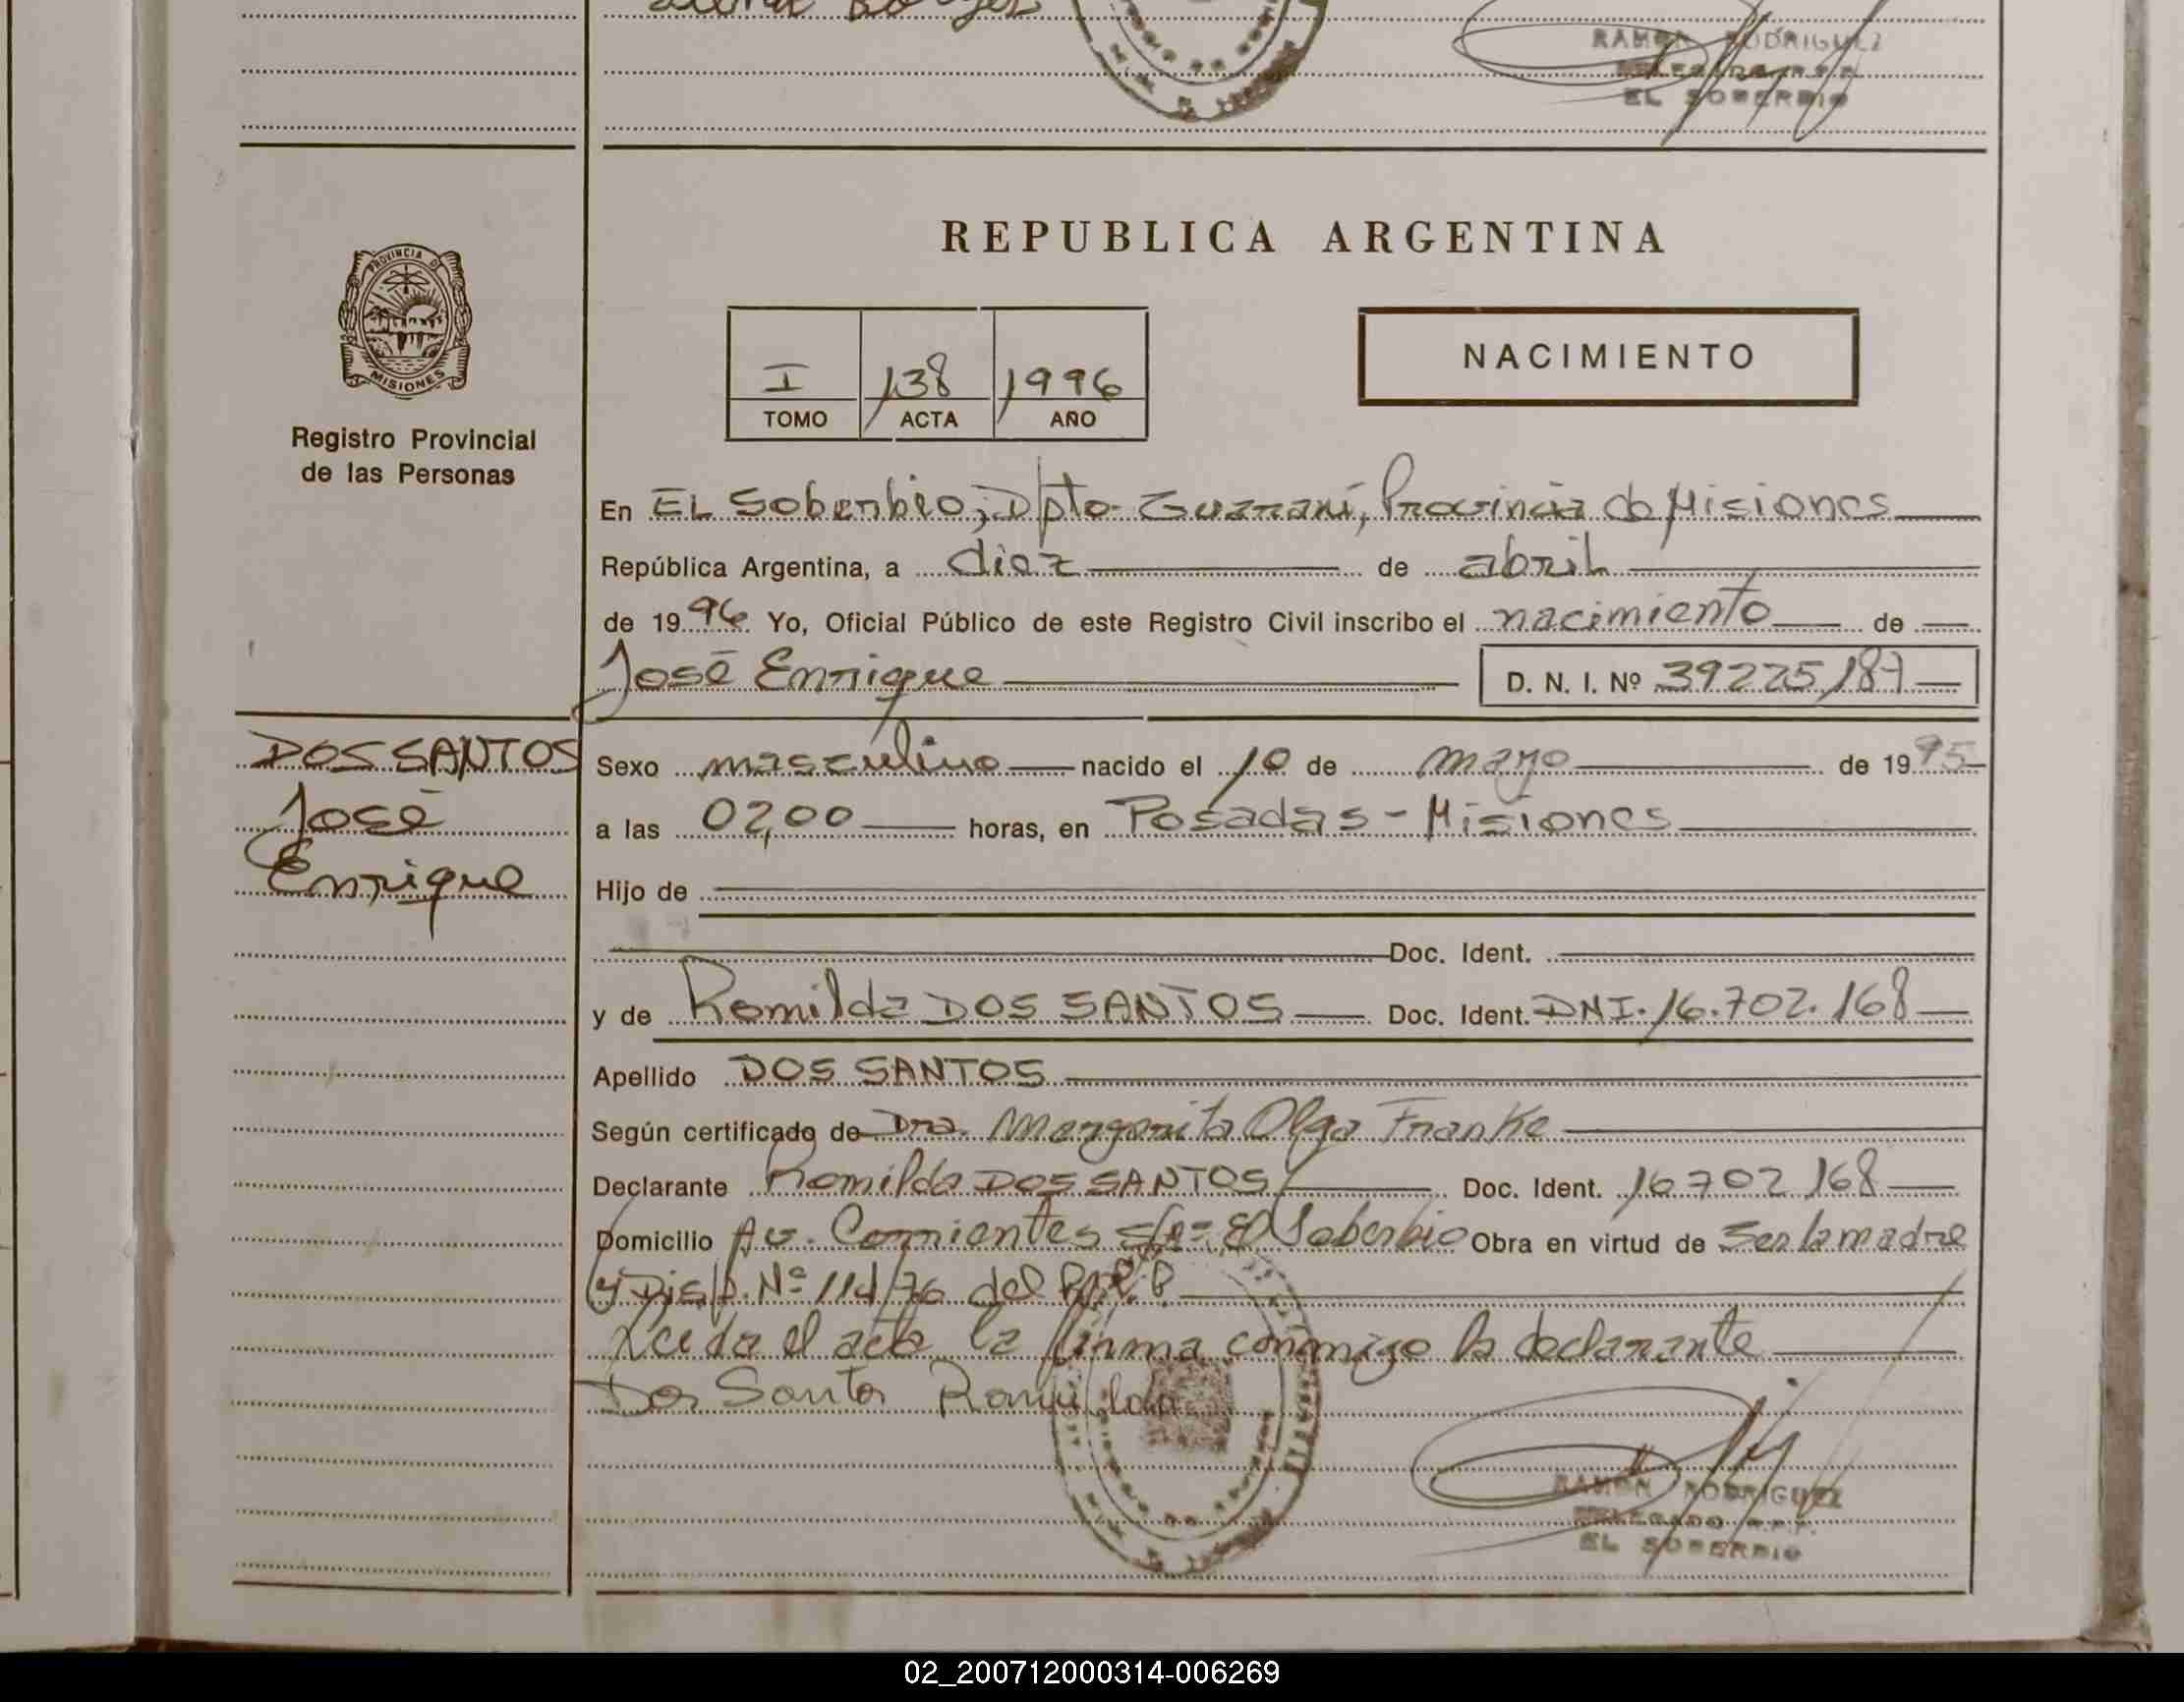 RAMON RODRIGUEZ
DELEGADO R.P.P.
EL SOBERBIO
REPUBLICA ARGENTINA
PROVINCIA DE
MISIONES
Registro Provincial
de las Personas
I 138 1996
TOMO ACTA AÑO
NACIMIENTO
En EL Soberbio, Dpto Guaraní, Provincia de Misiones
República Argentina, a diez de abril
de 1996 Yo, Oficial Público de este Registro Civil inscribo el nacimiento de
José Enrique D. N. I. Nº 39225187
DOS SANTOS
José
Enrique
Sexo masculino nacido el 10 de mayo de 1995
a las 02,00 horas, en Posadas - Misiones
Hijo de
Doc. Ident.
y de Romilda DOS SANTOS Doc. Ident. DNI. 16.702.168
Apellido DOS SANTOS
Según certificado de Dra. Margarita Olga Franke
Declarante Romilda DOS SANTOS Doc. Ident. 16702168
Domicilio Av. Corrientes S/Nº El Soberbio Obra en virtud de Ser la madre
y Disp. Nº 114/76 del R.P.P.
Leida el acta la firma conmigo la declarante
Dos Santos Romilda
RAMON RODRIGUEZ
DELEGADO R.P.P.
EL SOBERBIO
02_200712000314-006269